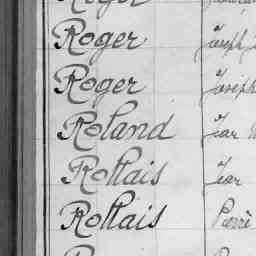 Roger
Roger Joseph
Roger Joseph
Roland Jean
Rollais Jean
Rollais Pierre